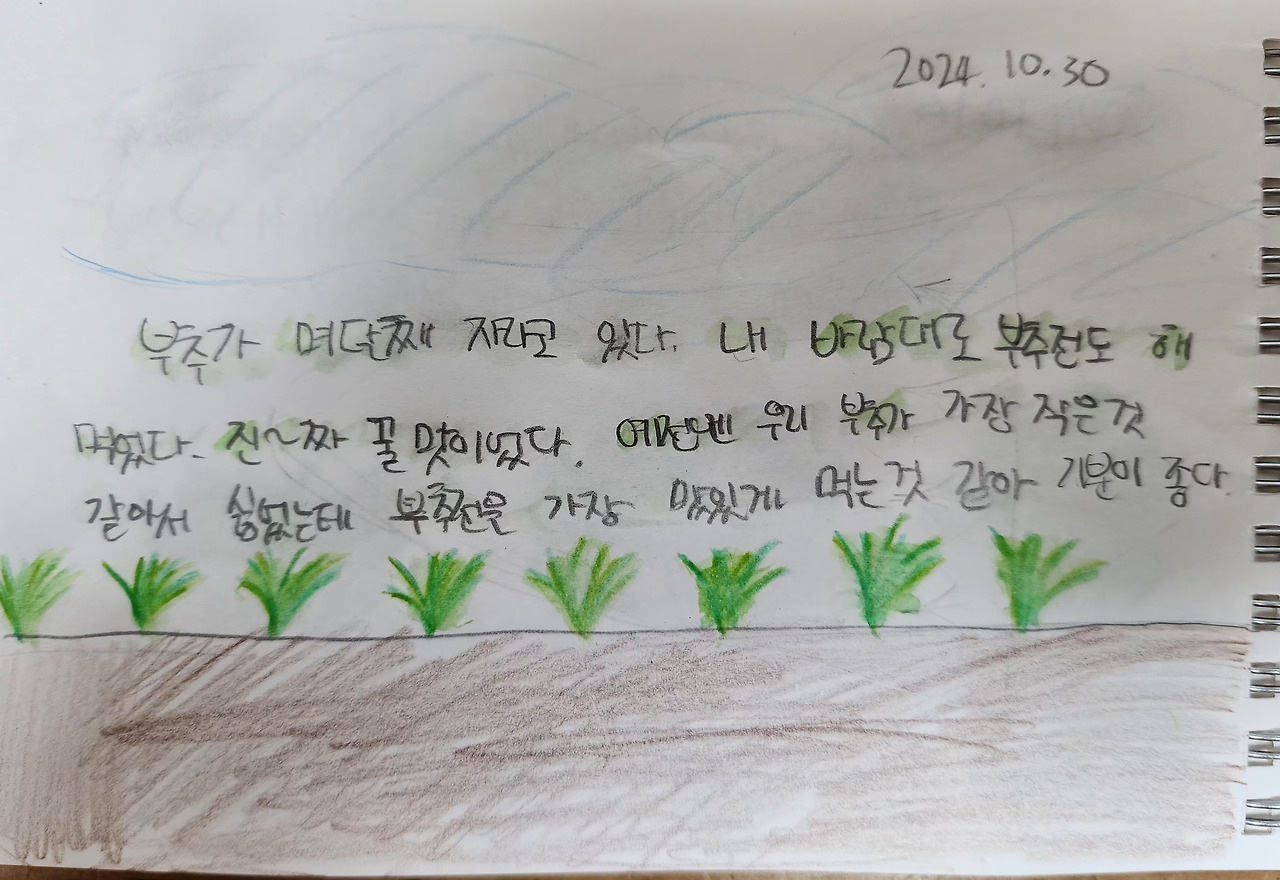 2024. 10. 30
부추가 며달째 자라고 있다. 내 바람대로 부추전도 해
먹었다. 진~짜 꿀맛이었다. 우리 부추가 가장 작은것
같아서 부추전을 가장 맛있게 먹는것 같아 기분이 좋다.